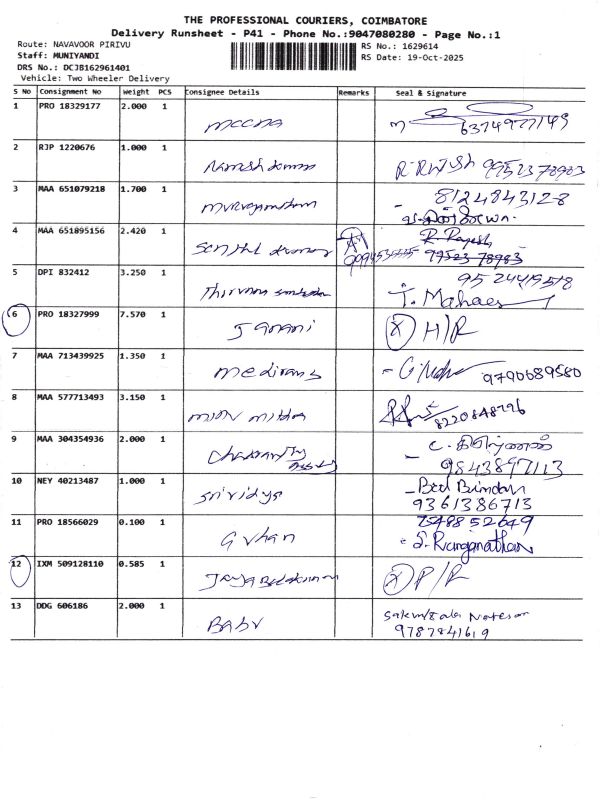 THE PROFESSIONAL COURIERS, COIMBATORE
Delivery Runsheet - P41 - Phone No.:9047080280 - Page No.:1
Route: NAVAVOOR PIRIVU
RS No.: 1629614
Staff: MUNIYANDI
RS Date: 19-Oct-2025
DRS No.: DCJB162961401
Vehicle: Two Wheeler Delivery
S No Consignment No Weight PCS Consignee Details Remarks Seal & Signature
1 PRO 18329177 2.000 1 Meena 6374977149
2 RJP 1220676 1.000 1 9952378983
3 MAA 651079218 1.700 1 8124843128
4 MAA 651895156 2.420 1 Senthil Kumar R. Rajesh
99523 78983
5 DPI 832412 3.250 1 9524419518
T. Mahaes
6 PRO 18327999 7.570 1 Janani X H/R
7 MAA 713439925 1.350 1 Medirans 9790689580
8 MAA 577713493 3.150 1 8220848796
9 MAA 304354936 2.000 1
9843897113
10 NEY 40213487 1.000 1 Srividya
9361386713
11 PRO 18566029 0.100 1 G Vhan 7548852649
S. Ranganathan
12 IXM 509128110 0.585 1 X P/R
13 DDG 606186 2.000 1 Babu
9787841619